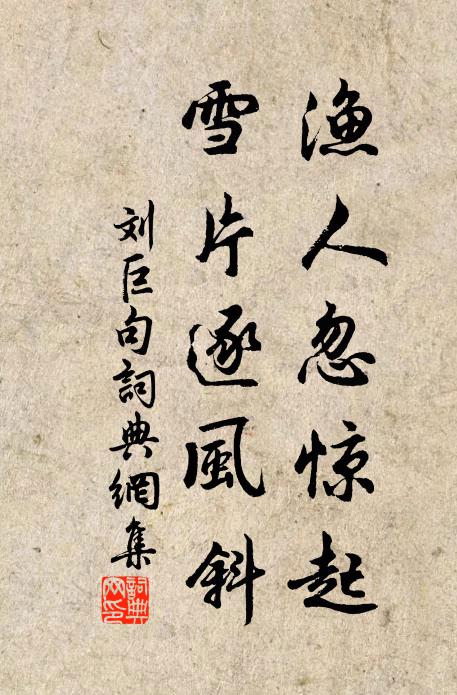 渔人忽惊起
雪片逐風斜
刘巨句詞典網集
詞典
网印